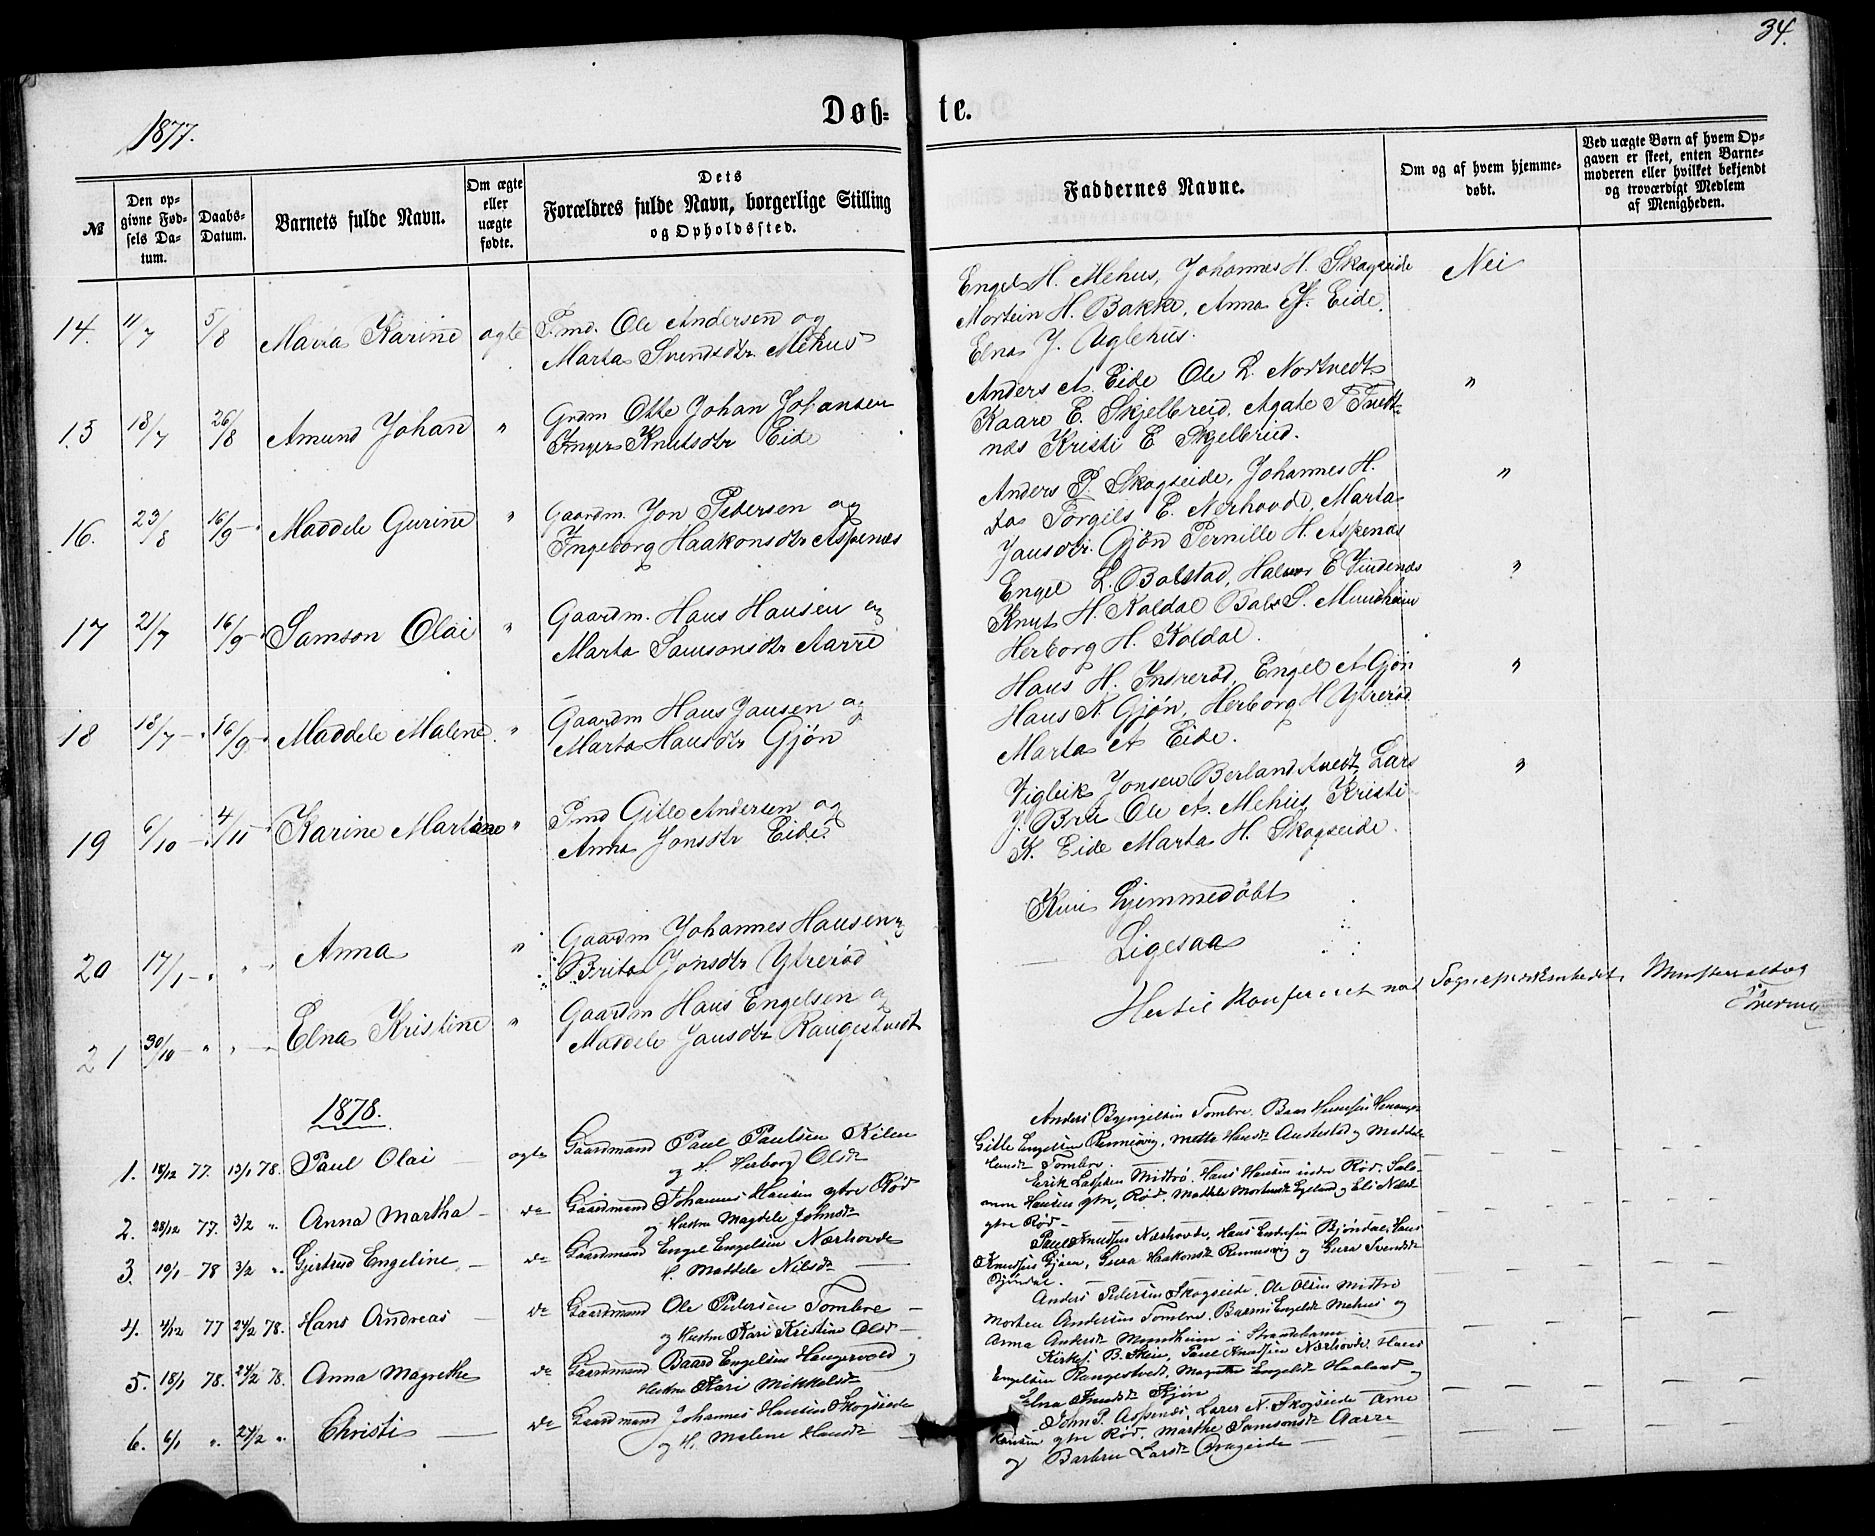 34.
Døb-
te.
1877.
№
Den op-
givne Fød-
sels Da-
tum.
Daabs-
Datum.
Barnets fulde Navn.
Om ægte
eller
uægte
fødte.
Dets
Forældres fulde Navn, borgerlige Stilling
og Opholdssted.
Faddernes Navne.
Om og af hvem hjemme-
døbt.
Ved uægte Børn af hvem Op-
gaven er skeet, enten Barne-
moderen eller hvilket bekjendt
og troværdigt Medlem
af Menigheden.
14. 11/7 5/8 Maria Karine ægte
Pmd. Ole Andersen og
Marta Svendsdtr Mehus
Engel H. Mehus, Johannes H. Skogseide
Mortein H. Bakke, Anna Eide,
Elna J. Uglehus.
Nei
15 18/7 26/8 Amund Johan "
Grdm Otte Johan Johansen
Inger Knutsdtr Eide
Anders A. Eide Ole L. Nortvedt
Kaare E. Skjelbreid, Agate T Tvedt-
næs Kristi E Skjelbreid.
"
16. 23/8 16/9 Maddele Gurine "
Gaardm. Jon Pedersen og
Ingeborg Haakonsdtr Aspenæs
Anders P. Skogseide, Johannes H.
do Torgils E. Nerhovde, Marta
Jansdtr. Gjøn Pernille H. Aspenæs
"
17 2/7 16/9 Samson Olai "
Gaardm. Hans Hansen og
Marta Samsonsdtr Aarre
Engel L. Bolstad, Halvor E Vindenæs
Knut H. Koldal Bals S. Mundheim
Herborg H. Koldal.
"
18 18/7 16/9 Maddele Malene "
Gaardm Hans Jansen og
Marta Hansdtr Gjøn
Hans H. Indrerød, Engel A Gjøn
Hans N. Gjøn, Herborg H Ytrerød
Marta A Eide.
"
19 6/10 4/11 Karine Martine "
Pmd Gitle Andersen og
Anna Jonsdtr Eide
Vigleik Jonsen Berland tvedt, Lars
J. Bru Ole A. Mehus, Kristi
K. Eide Marta H. Skogseide.
"
20 17/1 " " Anna "
Gaardm Johannes Hansen og
Brita Jonsdtr Ytrerød
Kun hjemmedøbt
21 30/10 " " Elna Kristine "
Gaardm Hans Engelsen og
Maddele Jansdtr Rangestvedt
Ligesaa
Hertil konfereret med Sogneprestembedets Ministerialbog
1878.
1. 18/12 77. 13/1 78. Paul Olai ægte
Gaardmand Paul Paulsen Kilen
og H. Herborg Olsdt
Anders Byengelsen Tombre, Baar
Gitle Engelsen Rennesvig, Mette Hansdt Austestad og Maddele
Hansdt Tombre.
2. 28/12 77. 3/2 " Anna Martha do
Gaardmand Johannes Hansen ytre Rød
og Hustru Magdele Johnsdt
Erik Larssen Midtrø, Hans Hansen indre Rød, Salo-
mon Hansen ytre Rød, Maddele Mortensdt Eyeland og Eli Nilsdt
ytre Rød
3. 10/1 78 3/2 " Gjertrud Engeline do
Gaardmand Engel Engelsen Nærhovde
H. Maddele Nilsdt
Paul Knudsen Nærhovde, Hans Endresen Bjöndal, Hans
Knudsen Gjøen, Gura Haakonsdt Rennesvig og Gura Svendsdt
Bjöndal.
4. 4/12 77 24/2 78. Hans Andreas do
Gaardmand Ole Pedersen Tombre
og Hustru Kari Kristine Olsd
Anders Pedersen Skogseide, Ole Olsen Midtrø
Morten Andersen Tombre, Barni Engelsdt Mehus og
Anna Mundheim i Strandebarm
5. 18/1 78. 24/2 78. Anna Magrethe do
Gaardmand Baard Engelsen Haugervold og
Hustru Kari Mikkelsdt
Kirkes. B. Skeie, Paul Knudsen Nærhovde, Hans
Engelsen Rangestvedt, Magrethe Engelsdt Haaland og
Elna Knudsdt Gjøn
6. 6/1 " 24/2 " Christi do
Gaardmand Johannes Hansen Skogseide
og H. Malene Hansdt
John P. Aspenæs, Larss N. Skogseide Arne
Hansen ytre Rød, Marthe Samsonsdt Aarre
og Barbru Larsdt Skogseide